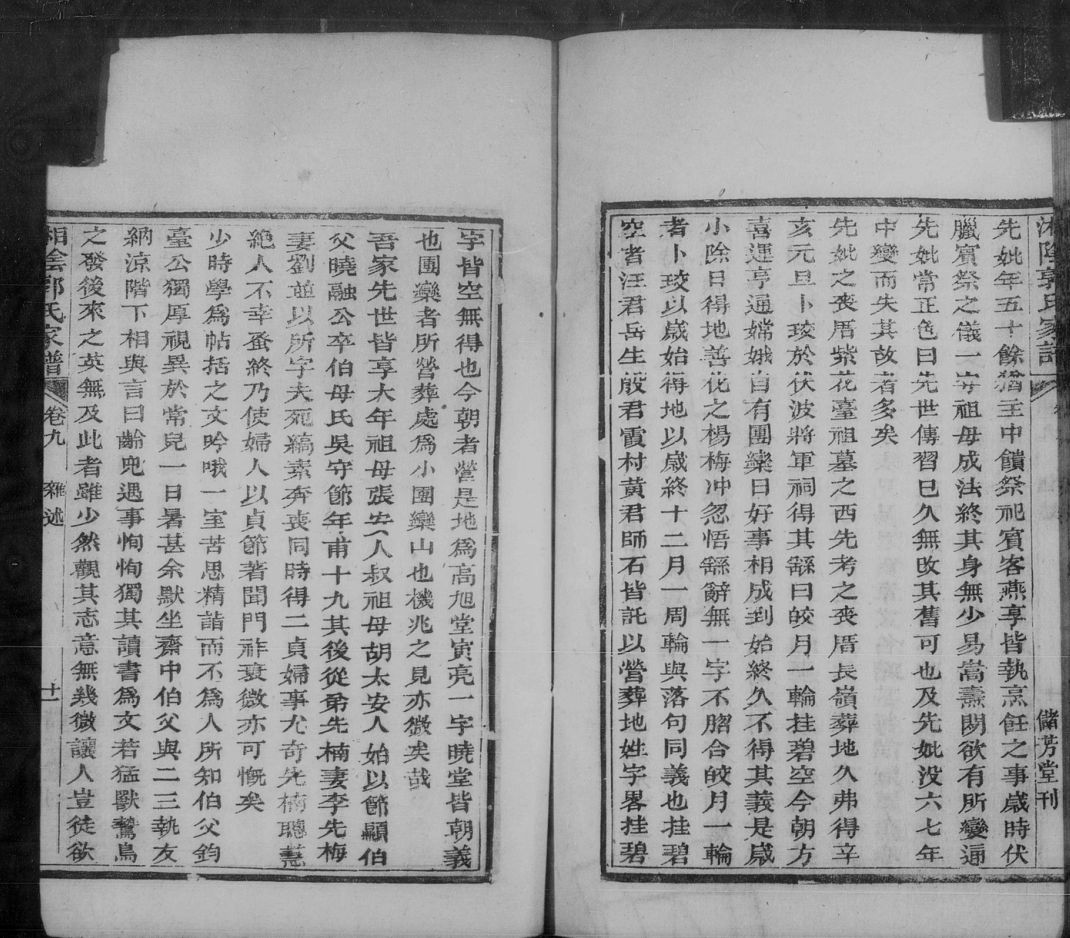 湘陰郭氏家譜
儲芳堂刊
先妣年五十餘猶主中饋祭祀賓客燕享皆執烹飪之事歲時伏
臘賓祭之儀一守祖母成法終其身無少易嵩燾閒欲有所變通
先妣常正色曰先世傳習已久無改其舊可也及先妣没六七年
中變而失其故者多矣
先妣之喪厝紫花臺祖墓之西先考之喪厝長嶺葬地久弗得辛
亥元旦卜珓於伏波將軍祠得其繇曰皎月一輪挂碧空今朝方
喜運亨通嫦娥自有團欒日好事相成到始終久不得其義是歲
小除日得地善化之楊梅冲忽悟繇辭無一字不脗合皎月一輪
者卜珓以歲始得地以歲終十二月一周輪與落句同義也挂碧
空者汪君岳生殷君霞村黄君師石皆託以營葬地姓字畧挂碧
字皆空無得也今朝者營是地爲高旭堂寅亮一字曉堂皆朝義
也團欒者所營葬處爲小團欒山也機兆之見亦微矣哉
吾家先世皆享大年祖母張安人叔祖母胡太安人始以節顯伯
父曉融公卒伯母氏吳守節年甫十九其後從弟先楠妻李先梅
妻劉並以所字夫死縞素奔喪同時得二貞婦事尤奇先楠聰慧
絶人不幸蚤終乃使婦人以貞節著聞門祚衰微亦可慨矣
少時學爲帖括之文吟哦一室苦思精詣而不爲人所知伯父鈞
臺公獨厚視異於常兒一日暑甚余默坐齋中伯父與二三執友
納涼階下相與言曰齡兒遇事恂恂獨其讀書爲文若猛獸鷙鳥
之發後來之英無及此者雖少然觀其志意無幾微讓人豈徒欲
湘陰郭氏家譜 卷九 雜述 十一